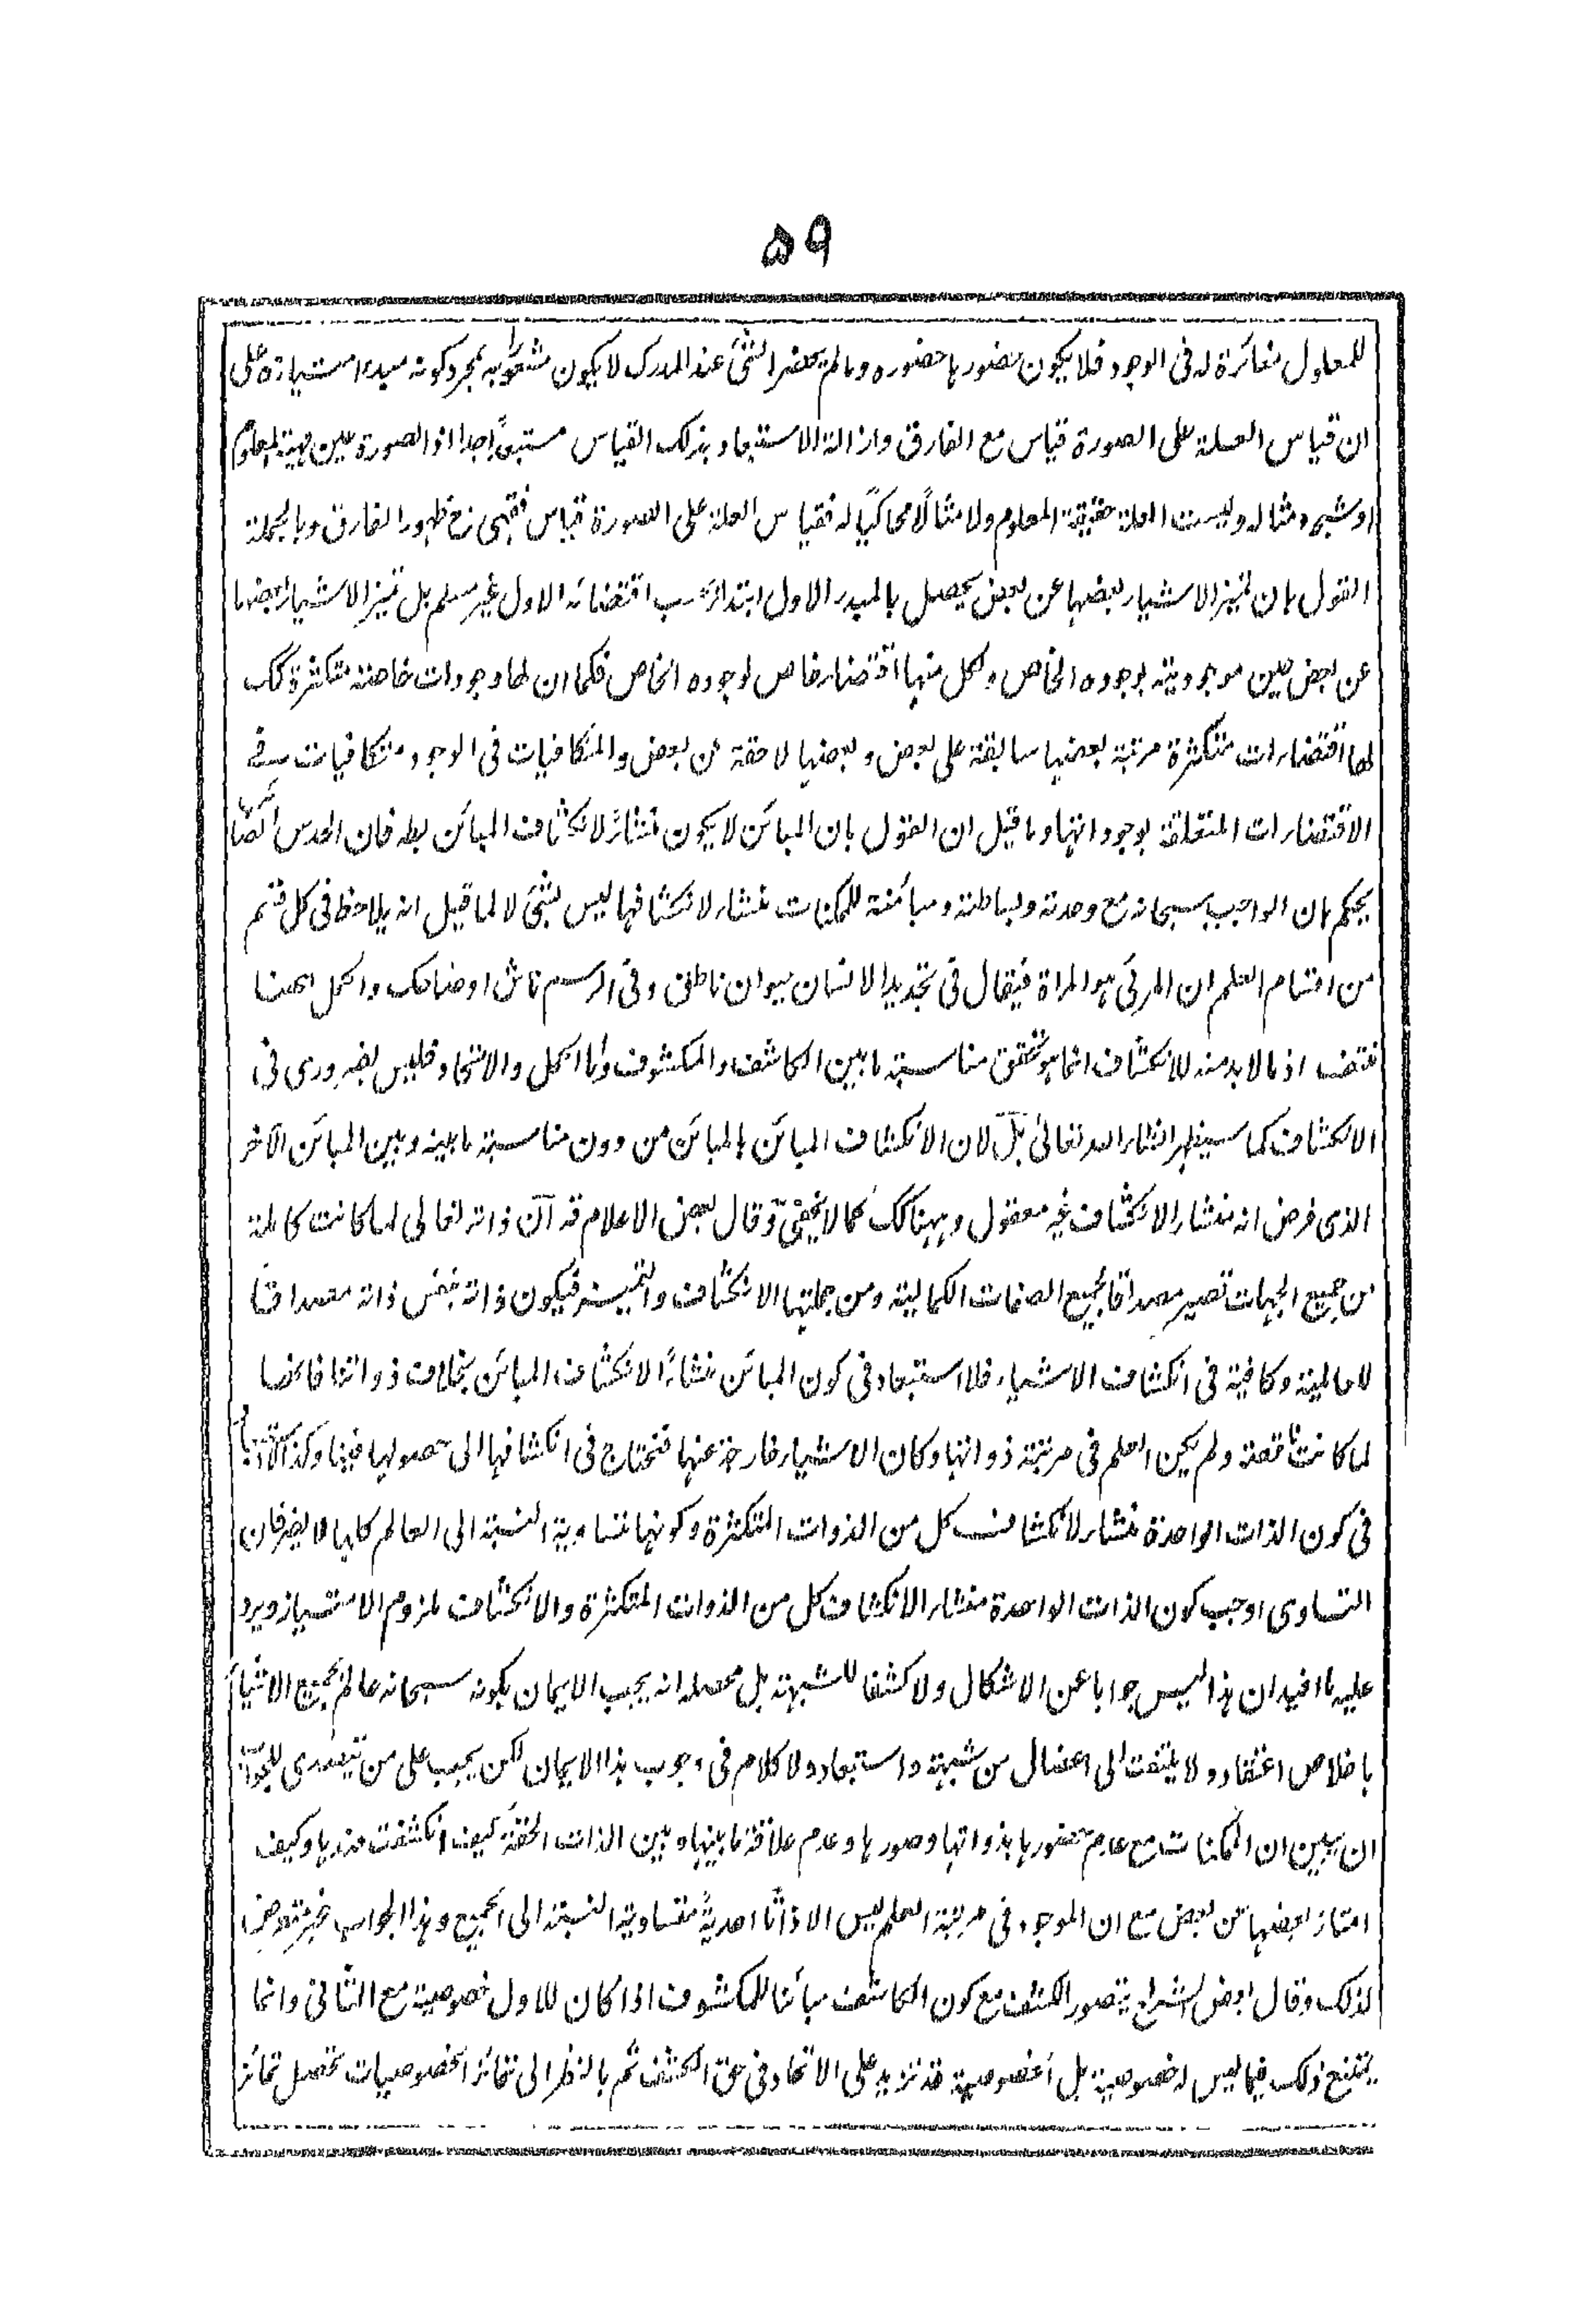 ٥٩
للمعلول مغائرة له فى الوجود فلا يكون حضورها حضوره وما لم يحضر الشئ عند المدرك لا يكون مشعورا به بمجرد كونه مبدء امتيازه على
ان قياس العلة على الصورة قياس مع الفارق وازالة الاستبعاد بذلك القياس مستبعد جدا اذ الصورة عين مهية المعلوم
او شبحه ومثاله وليست العلة حقيقة المعلوم ولا مثالًا محاكيًا له فقياس العلة على الصورة قياس فقهى مع ظهور الفارق وبالجملة
القول بان تميز الاشياء بعضها عن بعض يحصل بالمبدء الاول ابتداءً بسبب اقتضائه الاول غير مسلم بل تميز الاشياء بعضها
عن بعض حين موجوديته بوجوده الخاص ولكل منها اقتضاء خاص لوجوده الخاص فكما ان لها وجودات خاصة متكثرة كك
لها اقتضاءات متكثرة مرتبة بعضها سابقة على بعض وبعضها لاحقة عن بعض والمتكافيات فى الوجود متكافيات فى
الاقتضاءات المتعلقة بوجوداتها وما قيل ان القول بان المبائن لا يكون منشأً لانكشاف المبائن بط فان الحدس الصائب
يحكم بان الواجب سبحانه مع وحدته وبساطته ومبائنته للممكنات منشاء لانكشافها ليس بشئ لا لما قيل انه يلاحظ فى كل قسم
من اقسام العلم ان المرئى هو المراة فيقال فى تحديد الانسان حيوان ناطق وفى الرسم ماش او ضاحك والحمل ههنا
منتف اذ ما لا بد منه للانكشاف انما هو تحقق مناسبة ما بين الكاشف والمكشوف واما الحمل والاتحاد فليس بضرورى فى
الانكشاف كما سيظهر انشاء الله تعالى بل لان الانكشاف المبائن بالمبائن من دون مناسبة ما بينه وبين المبائن الآخر
الذى فرض انه منشاء الانكشاف غير معقول وههنا كك كما لا يخفى وقال بعض الاعلام قد ان ذاته تعالى لما كانت كاملة
من جميع الجهات تصير مصداقا لجميع الصفات الكمالية ومن جملتها الانكشاف والتميز فيكون ذاته بنفس ذاته مصداقا
لاعالمية وكافية فى انكشاف الاشياء فلا استبعاد فى كون المبائن منشأً لانكشاف المبائن بخلاف ذواتنا فانها
لما كانت ناقصة ولم يكن العلم فى مرتبة ذواتها وكان الاشياء خارجة عنها فتحتاج فى انكشافها الى حصولها فينا وكذا لا
فى كون الذات الواحدة منشاء لانكشاف كل من الذوات المتكثرة وكونها متساوية النسبة الى العالم كلها لا يضر فان
التساوى اوجب كون الذات الواحدة منشاء الانكشاف كل من الذوات المتكثرة والانكشاف ملزوم الامتياز ويرد
عليه ما افيد ان هذا ليس جوابا عن الاشكال ولا كشفا للشبهة بل محصله انه يجب الايمان بكونه سبحانه عالم بجميع الاشياء
باخلاص اعتقاد ولا يلتفت الى اعضال من شبهة واستبعاد ولا كلام فى وجوب هذا الايمان لكن يجب على من يتصدى للجواب
ان يبين ان الممكنات مع عدم حضورها بذواتها وصورها وعدم علاقة ما بينها وبين الذات الحقة كيف انكشفت عندها وكيف
امتاز بعضها عن بعض مع ان الموجود فى مرتبة العلم ليس الا ذاتًا احديةً متساوية النسبة الى الجميع وهذا الجواب غير متعرض
لذلك وقال بعض الشراح يتصور الكشف مع كون الكاشف مبائنا للمكشوف اذا كان للاول خصوصية مع الثانى وانما
يمتنع ذلك فيما ليس له خصوصية بل الخصوصية قد تزيد على الاتحاد فى حق الكشف ثم بالنظر الى تمائز الخصوصيات تحصل تمائز